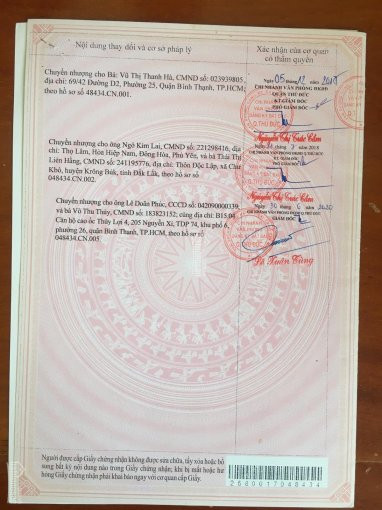 Nội dung thay đổi và cơ sở pháp lý
Xác nhận của cơ quan
có thẩm quyền
Chuyển nhượng cho Bà: Vũ Thị Thanh Hà, CMND số: 023939805,
địa chỉ: 69/42 Đường D2, Phường 25, Quận Bình Thạnh, TP.HCM;
theo hồ sơ 48434.CN.001.
Ngày 05 tháng 12 năm
CHI NHÁNH VĂN PHÒNG ĐKĐĐ
QUẬN THỦ ĐỨC
KT.GIÁM ĐỐC
PHÓ GIÁM ĐỐC
Nguyễn Thị Cúc
Chuyển nhượng cho ông Ngô Kim Lai, CMND số: 221298416, địa
chỉ: Thọ Lâm, Hòa Hiệp Nam, Đông Hòa, Phú Yên, và bà Thái Thị
Liên Hằng, CMND số: 241195776, địa chỉ: Thôn Độc Lập, xã Chứ
Kbô, huyện Krông Búk, tỉnh Đắk Lắk, theo hồ sơ số
048434.CN.002.
Nguyễn Thị Cúc
Chuyển nhượng cho ông Lê Doãn Phúc, CCCD số: 042090000339,
và bà Võ Thu Thủy, CMND số: 183823152; cùng địa chỉ: B15.04
Căn hộ cao ốc Thủy Lợi 4, 205 Nguyễn Xí, TDP 74, khu phố 6,
phường 26, quận Bình Thạnh, TP.HCM, theo hồ sơ số
048434.CN.005
Ngày 30 tháng 6 năm 2020
Q.THỦ ĐỨC
Xuân Tùng
Người được cấp Giấy chứng nhận không được sửa chữa, tẩy xóa hoặc bổ
sung bất kỳ nội dung nào trong Giấy chứng nhận; khi bị mất hoặc hư
hỏng Giấy chứng nhận phải khai báo ngay với cơ quan cấp Giấy.